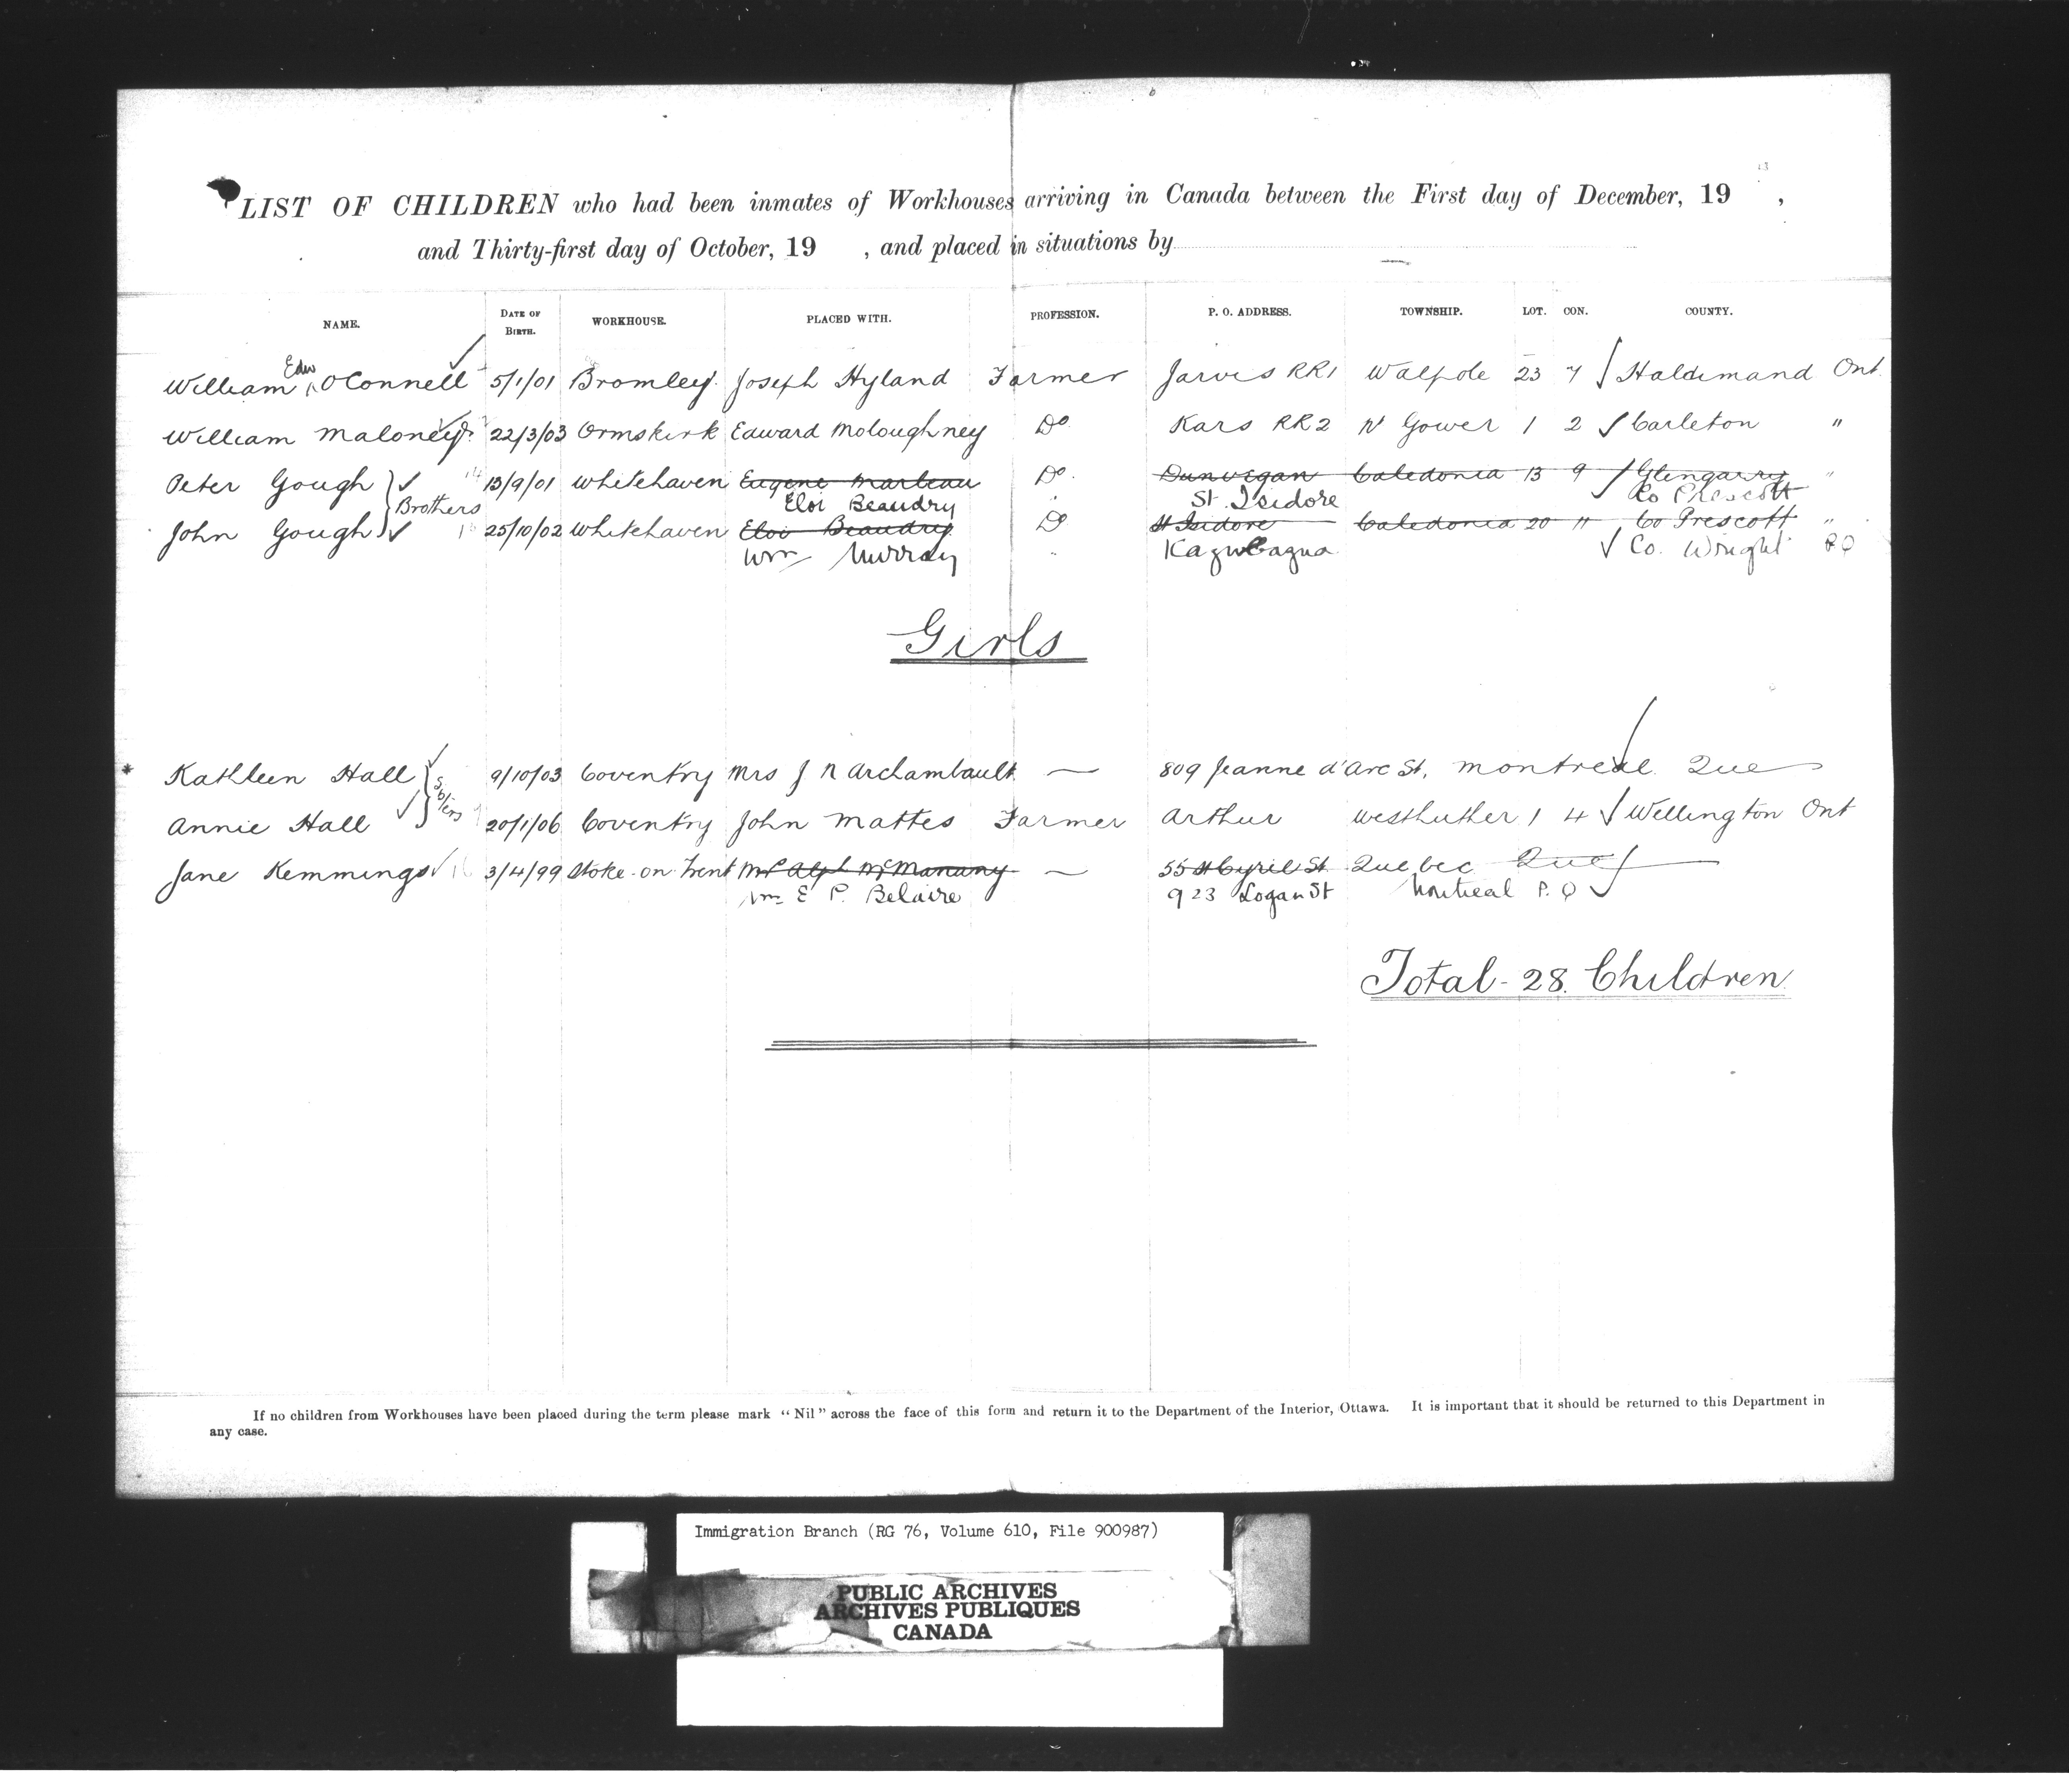 LIST OF CHILDREN who had been inmates of Workhouses arriving in Canada between the First day of December, 19 ,
and Thirty-first day of October, 19 , and placed in situations by
NAME. DATE OF BIRTH. WORKHOUSE. PLACED WITH. PROFESSION. P. O. ADDRESS. TOWNSHIP. LOT. CON. COUNTY.
William Edw OConnell 5/1/01 Bromley. Joseph Hyland Farmer Jarvis RR1 Walpole 23 7 Haldimand Ont.
William Maloney 22/3/03 Ormskirk Edward Moloughney Do Kars RR2 N Gower 1 2 Carleton "
Peter Gough 13/9/01 Whitehaven Eugene Marleau Do. Dunvegan Caledonia 13 9 Glengarry "
Brothers Eloi Beaudry St. Isidore Co Prescott
John Gough 25/10/02 Whitehaven Eloi Beaudry Do St Isidore Caledonia 20 11 Co Prescott "
Wm Murray Kazubazua Co. Wright PQ
Girls
Kathleen Hall 9/10/03 Coventry Mrs J N Archambault — 809 Jeanne d'Arc St, Montreal Que
Sisters
Annie Hall 20/1/06 Coventry John Mattes Farmer Arthur Westluther 1 4 Wellington Ont
Jane Kemmings 3/4/99 Stoke-on-Trent Mrs Alph McManany — 55 St Cyril St Quebec Que
E P. Belaire 923 Logan St Montreal P.Q
Total - 28. Children.
If no children from Workhouses have been placed during the term please mark "Nil" across the face of this form and return it to the Department of the Interior, Ottawa. It is important that it should be returned to this Department in
any case.
Immigration Branch (RG 76, Volume 610, File 900987)
PUBLIC ARCHIVES
ARCHIVES PUBLIQUES
CANADA